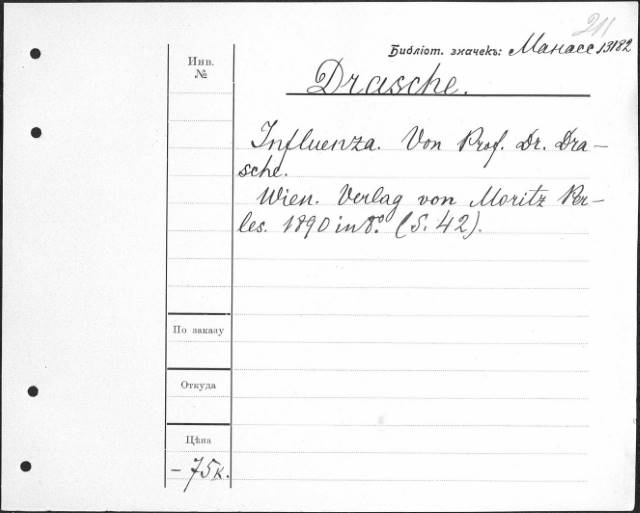 211
Библіот. значекъ: Манасс 13182
Инв.
№
Drasche.
Influenza. Von Prof. Dr. Dra–
sche.
Wien. Verlag von Moritz Per–
les. 1890 in 8°. (S. 42).
По заказу
Откуда
Цѣна
– 75 к.